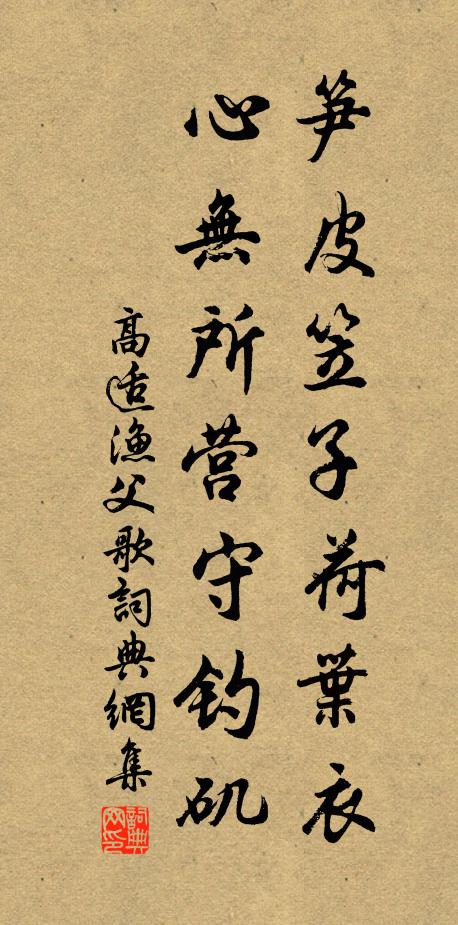 笋皮笠子荷葉衣
心無所營守釣矶
高适漁父歌詞典網集
詞典网印